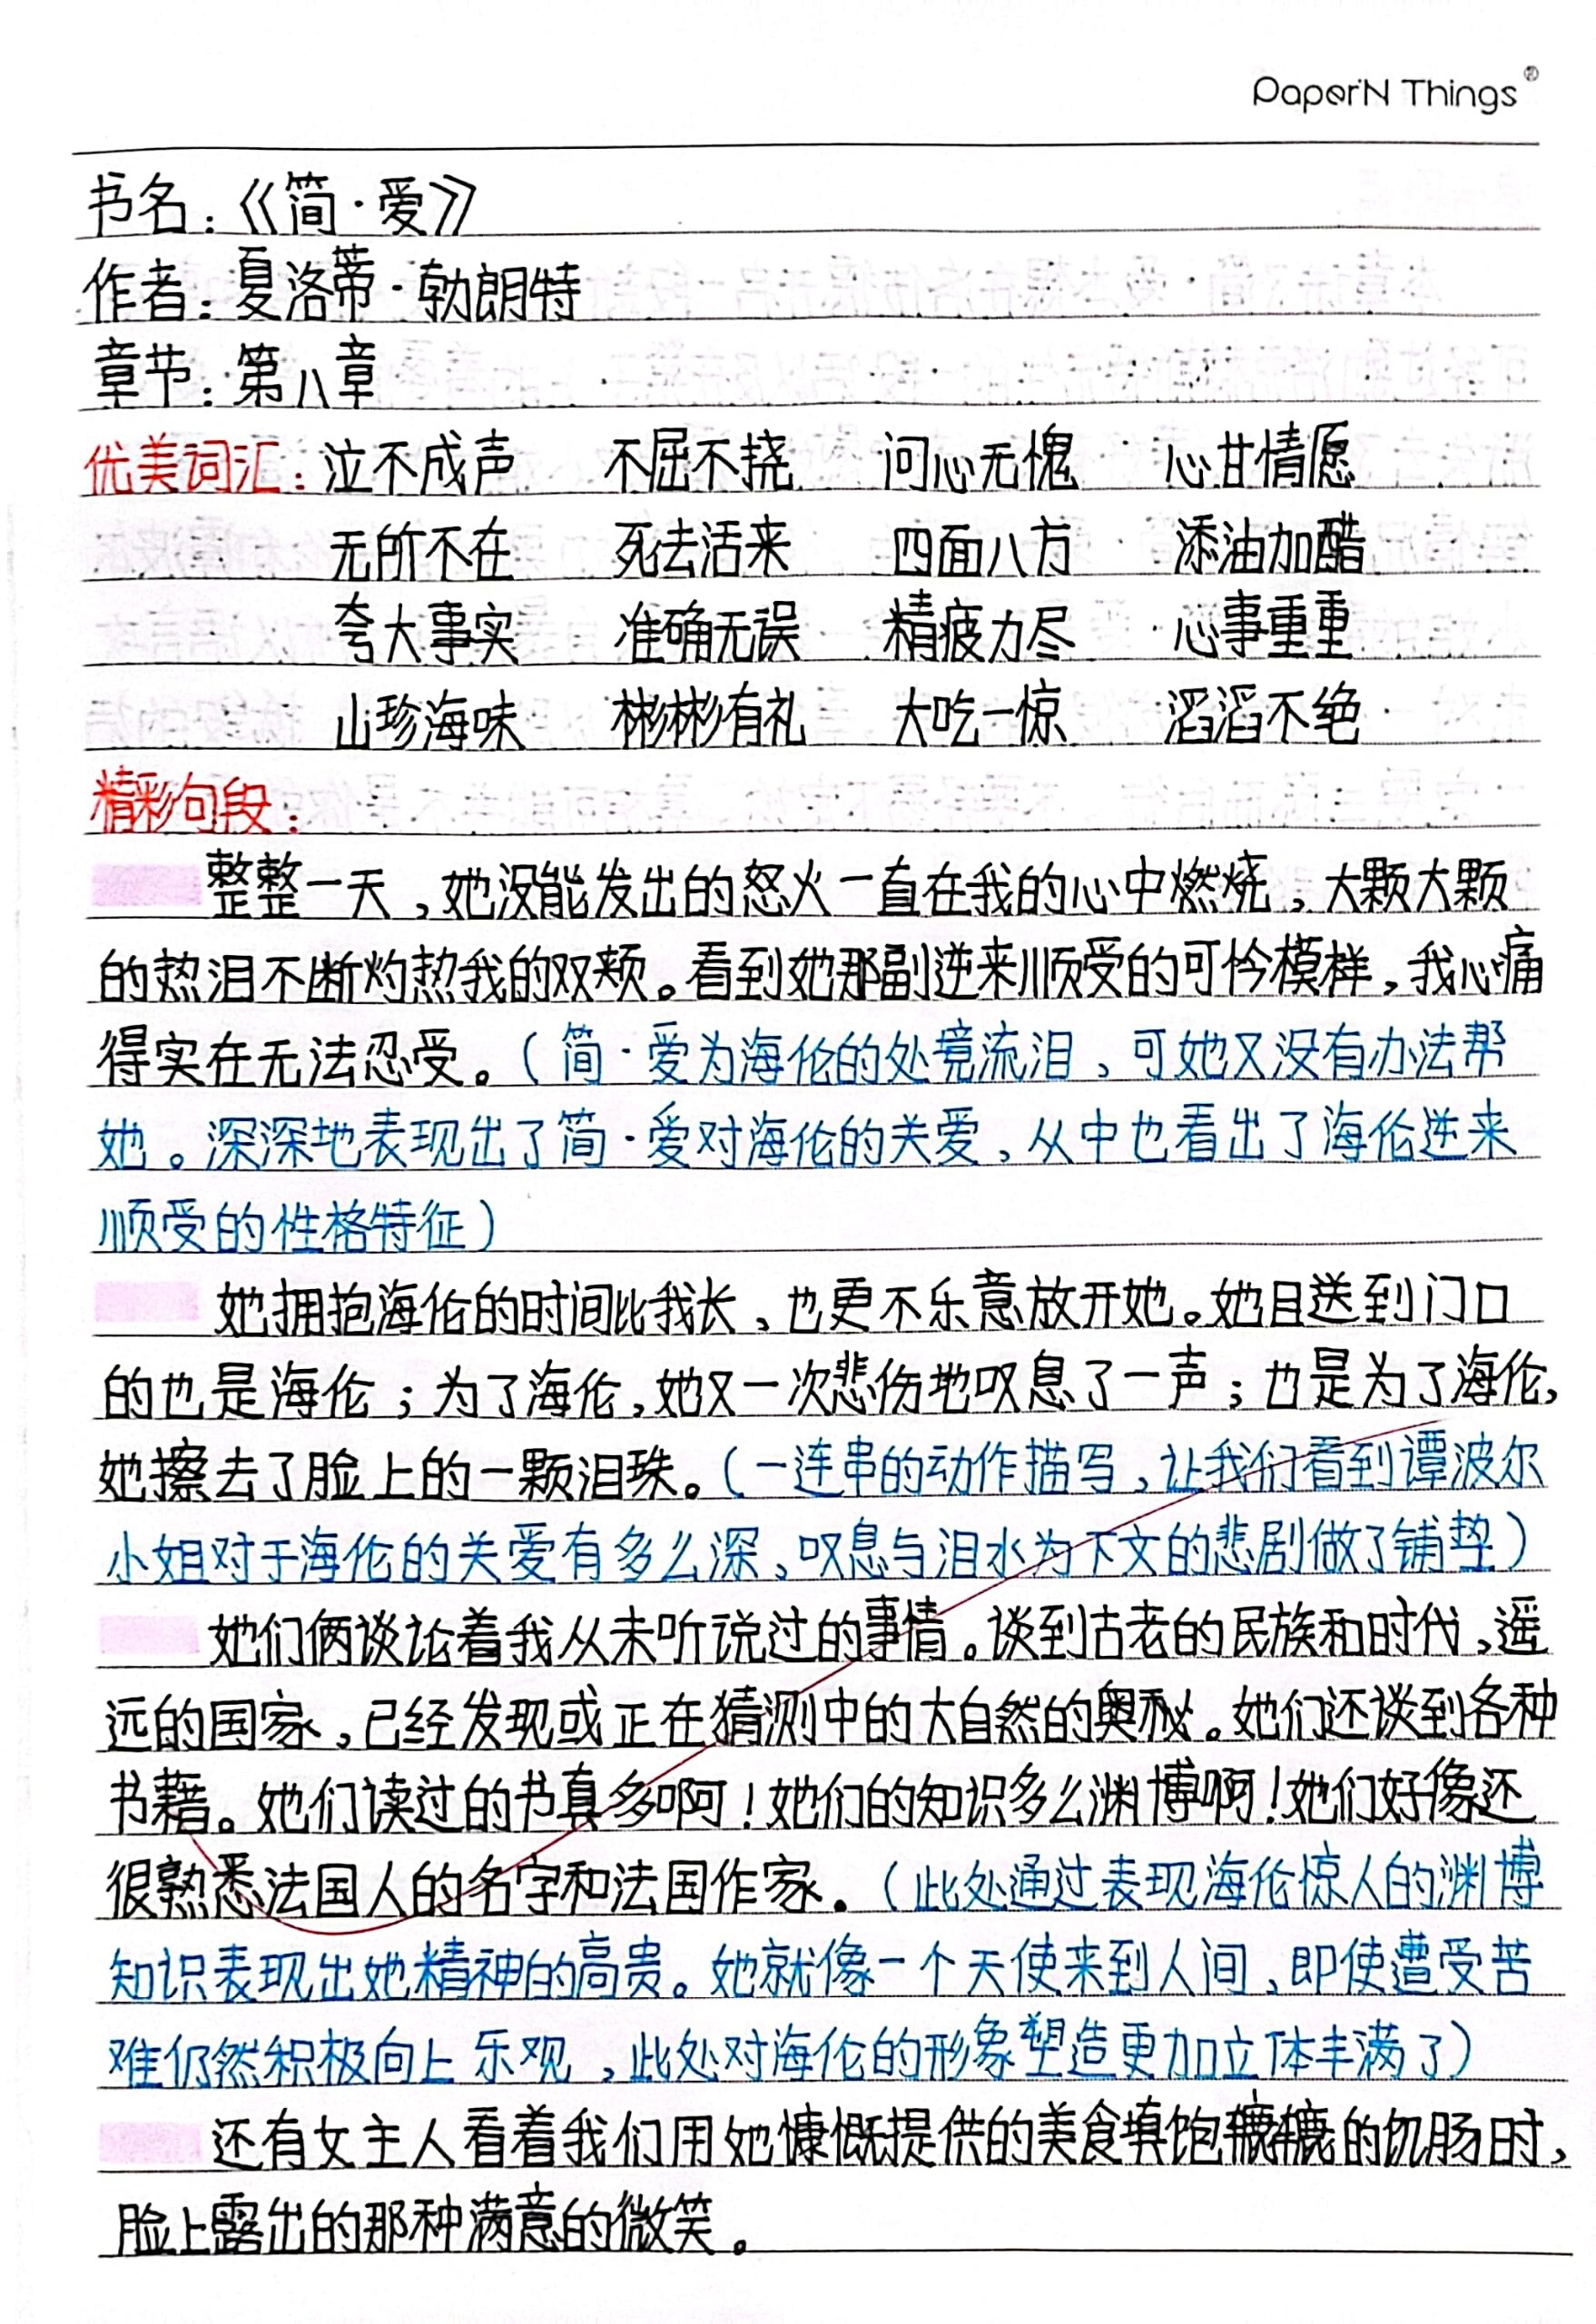 PaperN Things®
书名：《简·爱》
作者：夏洛蒂·勃朗特
章节：第八章
优美词汇：泣不成声 不屈不挠 问心无愧 心甘情愿
无所不在 死去活来 四面八方 添油加醋
夸大事实 准确无误 精疲力尽 心事重重
山珍海味 彬彬有礼 大吃一惊 滔滔不绝
精彩句段：
整整一天，她没能发出的怒火一直在我的心中燃烧，大颗大颗
的热泪不断灼热我的双颊。看到她那副逆来顺受的可怜模样，我心痛
得实在无法忍受。（简·爱为海伦的处境流泪，可她又没有办法帮
她。深深地表现出了简·爱对海伦的关爱，从中也看出了海伦逆来
顺受的性格特征）
她拥抱海伦的时间比我长，也更不乐意放开她。她目送到门口
的也是海伦；为了海伦，她又一次悲伤地叹息了一声；也是为了海伦，
她擦去了脸上的一颗泪珠。（一连串的动作描写，让我们看到谭波尔
小姐对于海伦的关爱有多么深，叹息与泪水为下文的悲剧做了铺垫）
她们俩谈论着我从未听说过的事情。谈到古老的民族和时代，遥
远的国家，已经发现或正在猜测中的大自然的奥秘。她们还谈到各种
书籍。她们读过的书真多啊！她们的知识多么渊博啊！她们好像还
很熟悉法国人的名字和法国作家。（此处通过表现海伦惊人的渊博
知识表现出她精神的高贵。她就像一个天使来到人间，即使遭受苦
难仍然积极向上乐观，此处对海伦的形象塑造更加立体丰满了）
还有女主人看着我们用她慷慨提供的美食填饱辘辘的饥肠时，
脸上露出的那种满意的微笑。